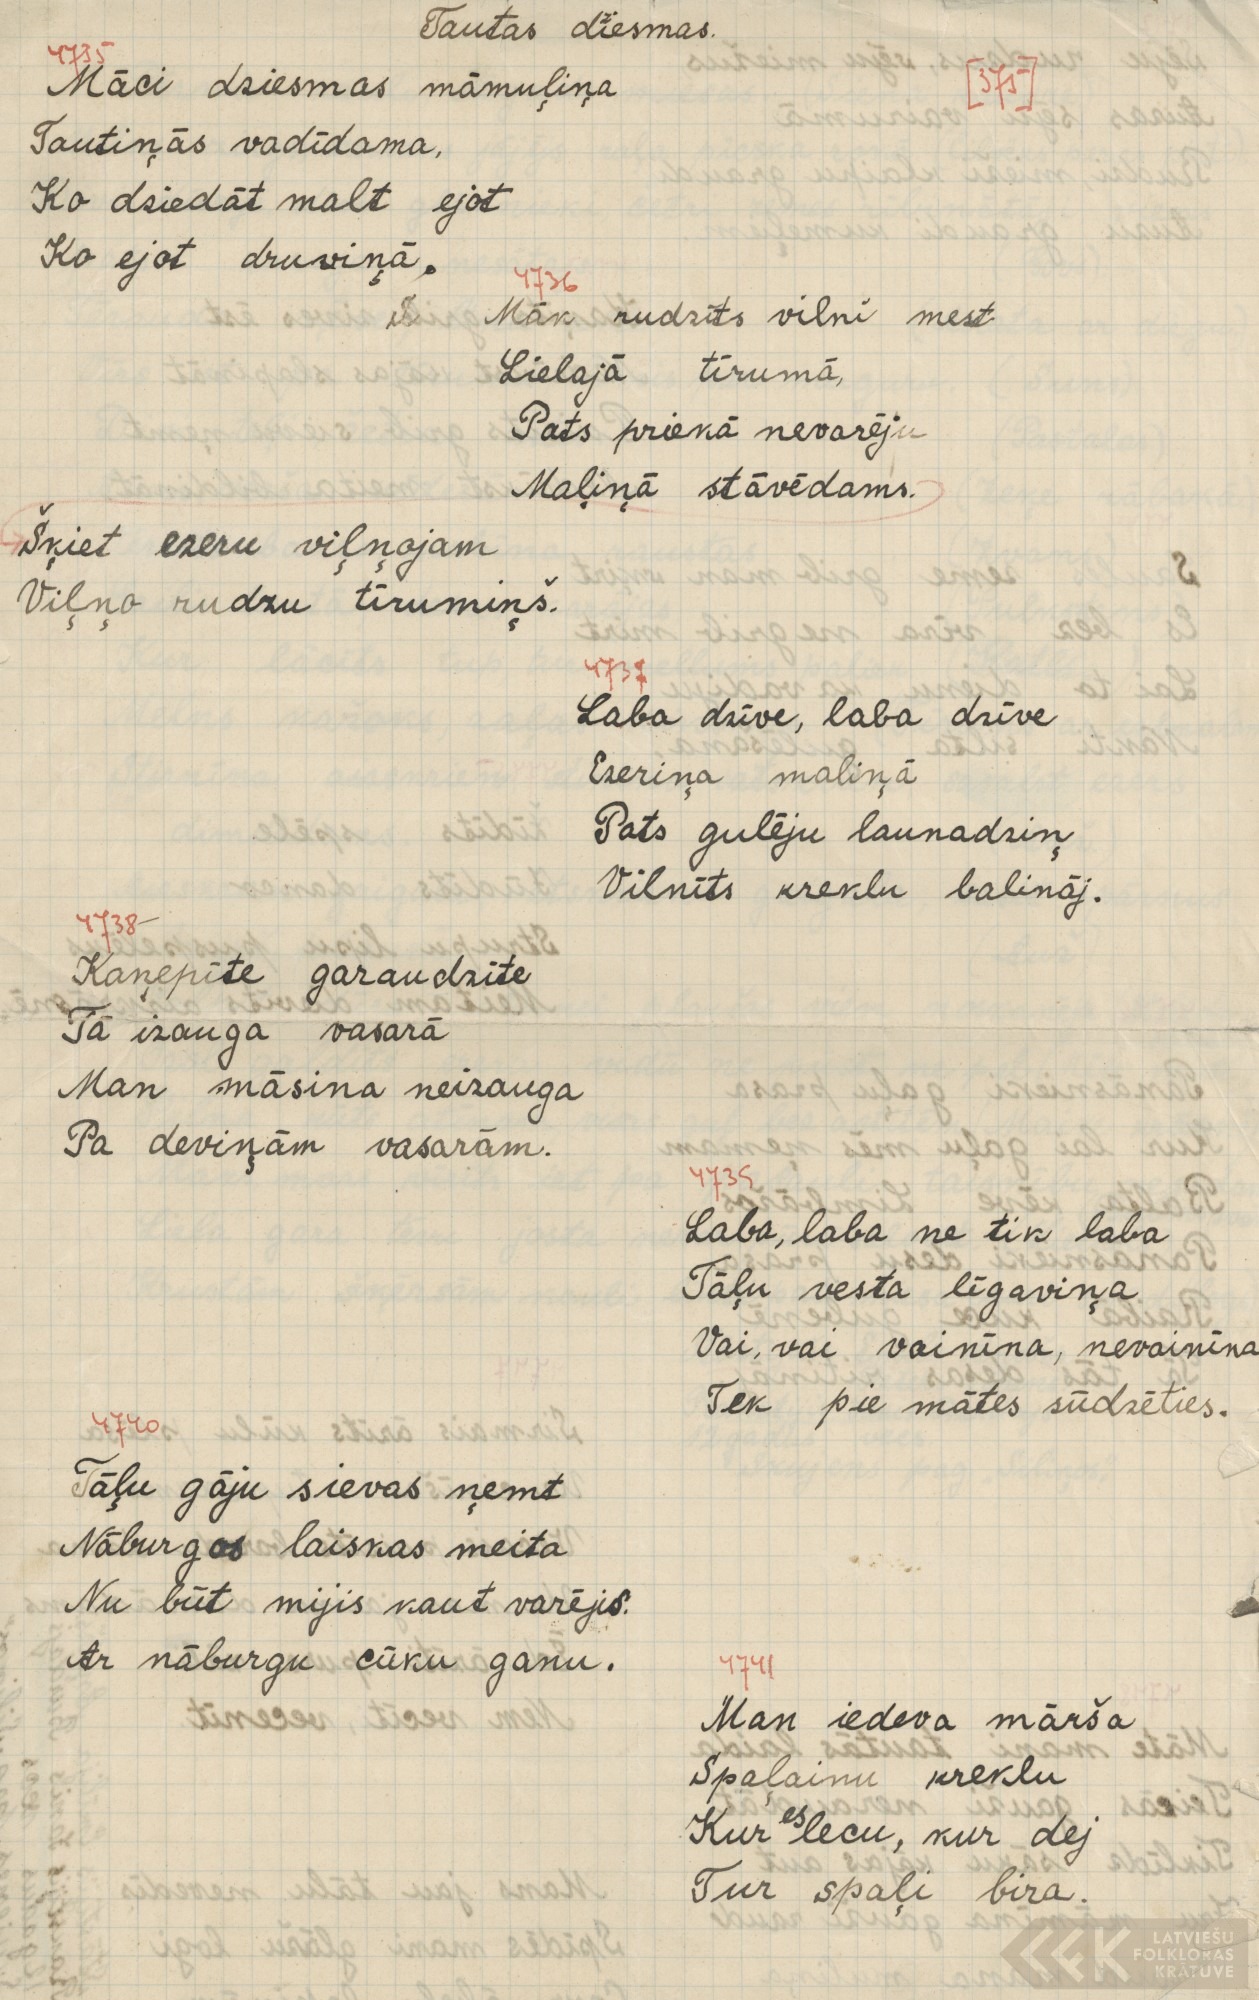 Tautas dziesmas.
[375]
4735
Māci dziesmas māmuļiņa
Tautiņās vadīdama,
Ko dziedāt malt ejot
Ko ejot druviņā.
4736
Māk rudzīts vilni mest
Lielajā tīrumā,
Pats priekā nevarēju
Maļiņā stāvēdams.
Šķiet ezeru viļņojam
Viļņo rudzu tīrumiņš.
4737
Laba dzīve, laba dzīve
Ezeriņa maliņā
Pats gulēju launadziņ
Vilnīts kreklu balināj.
4738
Kaņepīte garaudzīte
Tā izauga vasarā
Man māsina neizauga
Pa deviņām vasarām.
4739
Laba, laba ne tik laba
Tāļu vesta līgaviņa
Vai, vai vainīna, nevainīna
Tek pie mātes sūdzēties.
4740
Tāļu gāju sievas ņemt
Nāburgos laiskas meita
Nu būt mijis kaut varējis.
Ar nāburgu cūku ganu.
4741
Man iedeva mārša
Spaļainu kreklu
Kur es lecu, kur dej
Tur spaļi bira.
LATVIEŠU
FOLKLORAS
KRĀTUVE